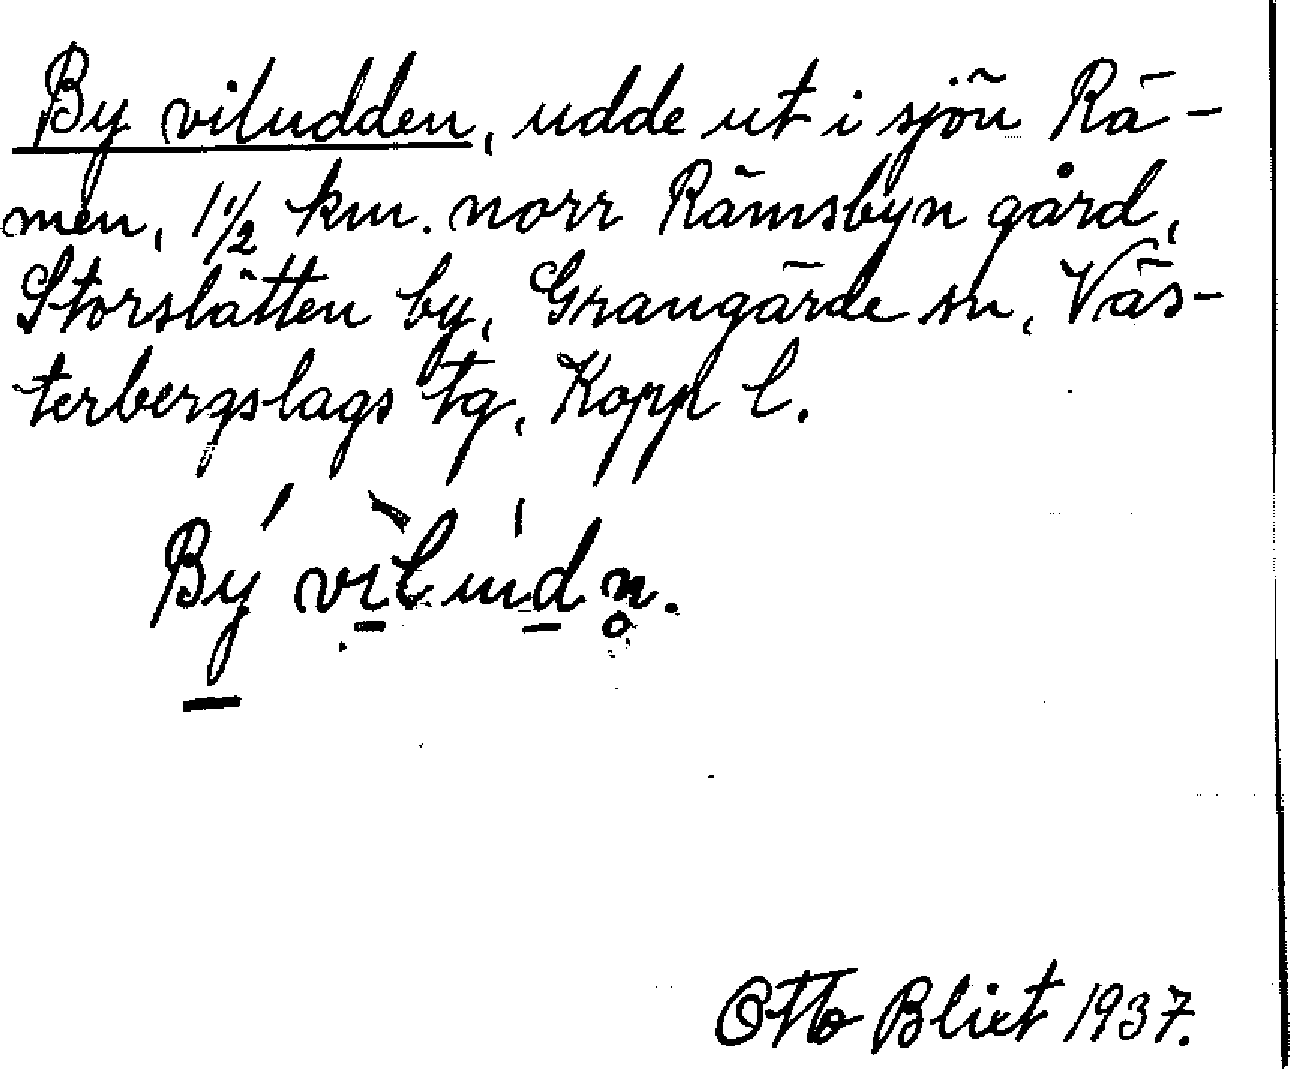 By viludden, udde ut i sjön Rä-
men, 1 1/2 km. norr Rämsbyn gård,
Storslätten by, Grangärde sn, Väs-
terbergslags tg, Kopp l.
Bý vìlúdn̥.
Otto Blixt 1937.